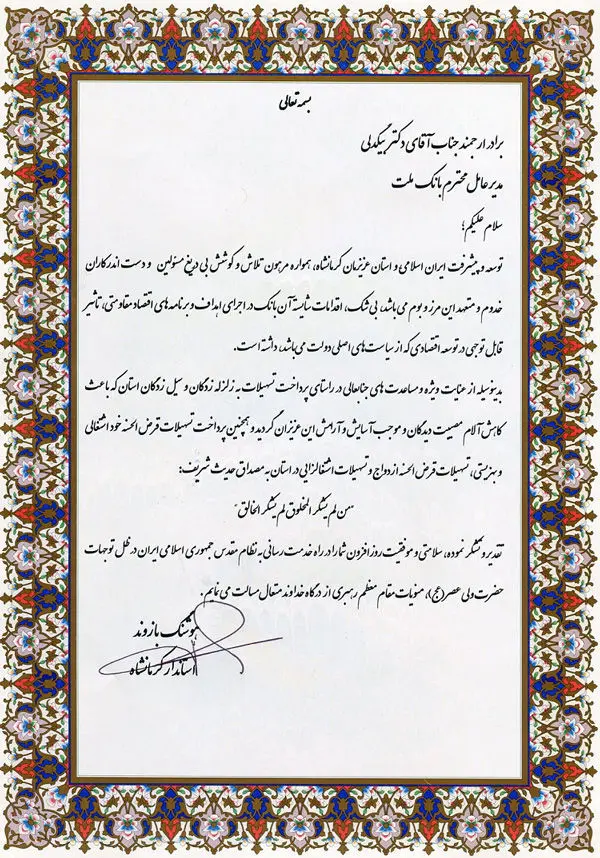 بسمه تعالی
برادر ارجمند جناب آقای دکتر بیگدلی
مدیر عامل محترم بانک ملت
سلام علیکم؛
توسعه و پیشرفت ایران اسلامی و استان عزیزمان کرمانشاه، همواره مرهون تلاش و کوشش بی دریغ مسئولین و دست اندرکاران
خدوم و متعهد این مرز و بوم می باشد، بی شک، اقدامات شایسته آن بانک در اجرای اهداف و برنامه های اقتصاد مقاومتی، تاثیر
قابل توجهی در توسعه اقتصادی که از سیاست های اصلی دولت می باشد، داشته است.
بدینوسیله از عنایت ویژه و مساعدت های جنابعالی در راستای پرداخت تسهیلات به زلزله زدگان و سیل زدگان استان که باعث
کاهش آلام مصیبت دیدگان و موجب آسایش و آرامش این عزیزان گردید و همچنین پرداخت تسهیلات قرض الحسنه خود اشتغالی
و بهزیستی، تسهیلات قرض الحسنه ازدواج و تسهیلات اشتغالزایی در استان به مصداق حدیث شریف:
"من لم یشکر المخلوق لم یشکر الخالق"
تقدیر و تشکر نموده، سلامتی و موفقیت روزافزون شما را در راه خدمت رسانی به نظام مقدس جمهوری اسلامی ایران در ظل توجهات
حضرت ولی عصر(عج)، منویات مقام معظم رهبری از درگاه خداوند متعال مسالت می نمایم.
هوشنگ بازوند
استاندار کرمانشاه